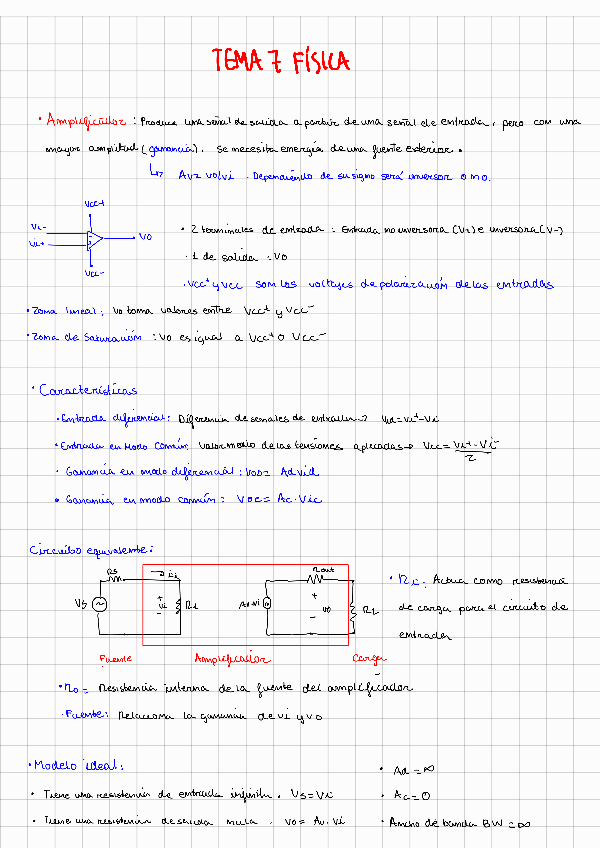 TEMA 7 FÍSICA
· Amplificador : Produce una señal de salida a partir de una señal de entrada, pero con una
mayor amplitud (ganancia). Se necesita energía de una fuente exterior.
↳ Av= vo/vi . Dependiendo de su signo será inversor o no.
Vcc+
Vi-
Vi+
VO
Vcc-
· 2 terminales de entrada : Entrada no inversora (V+) e inversora (V-)
· 1 de salida : VO
· Vcc+ y Vcc son los voltajes de polarización de las entradas
· Zona lineal : Vo toma valores entre Vcc+ y Vcc-
· Zona de Saturación : Vo es igual a Vcc+ o Vcc-
· Características
· Entrada diferencial: Diferencia de señales de entrada → Vid=Vi+-Vi
· Entrada en Modo Común: Valor medio de las tensiones aplicadas → Vcc= Vi+-Vi-
2
· Ganancia en modo diferencial : VOD= Ad Vid
· Ganancia en modo común : VOC= Ac·Vic
Circuito equivalente:
RS
ii
Rout
VS
+
vi
-
Ri
Av·vi
+
vo
-
RL
Fuente
Amplificador
Carga
· Ri : Actua como resistencia
de carga para el circuito de
entrada
· ro = Resistencia interna de la fuente del amplificador
· Fuente: Relaciona la ganancia de vi y vo
· Modelo ideal:
· Ad = ∞
· Tiene una resistencia de entrada infinita . VS=Vi
· Ac=0
· Tiene una resistencia de salida nula . Vo= Av·Vi
· Ancho de banda BW=∞